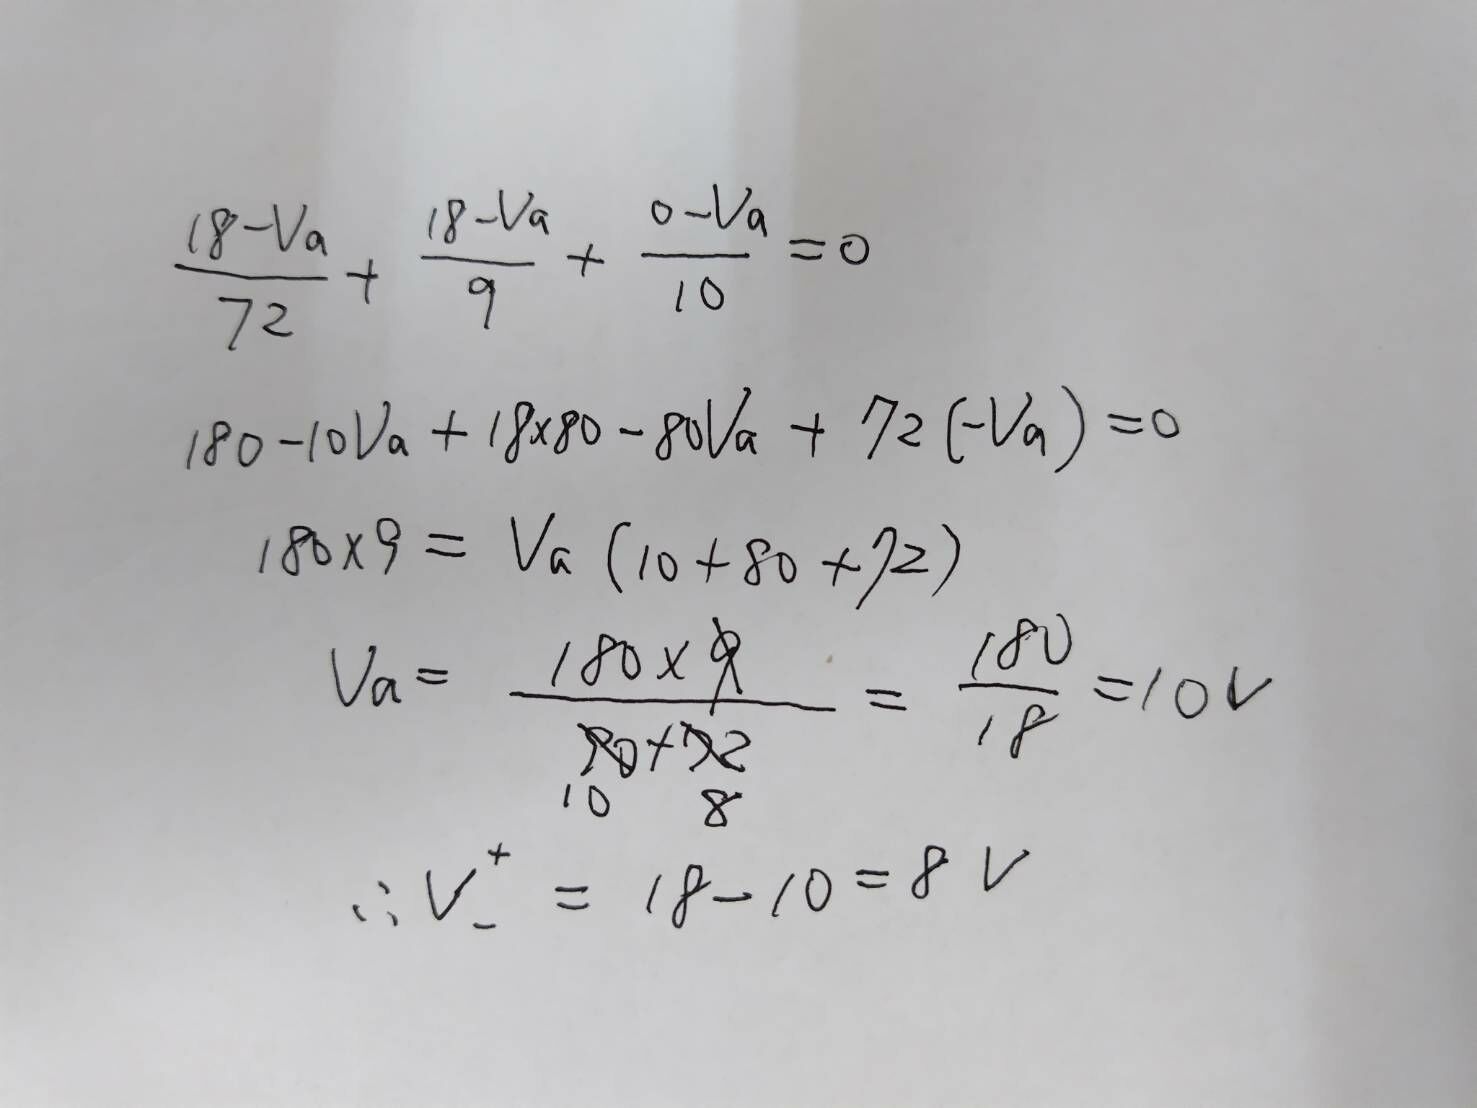 (18-Va)/72 + (18-Va)/9 + (0-Va)/10 = 0
180-10Va+18×80-80Va+72(-Va)=0
180×9=Va(10+80+72)
Va=(180×9)/(90+72)=180/18=10V
10 8
∴V+-=18-10=8V